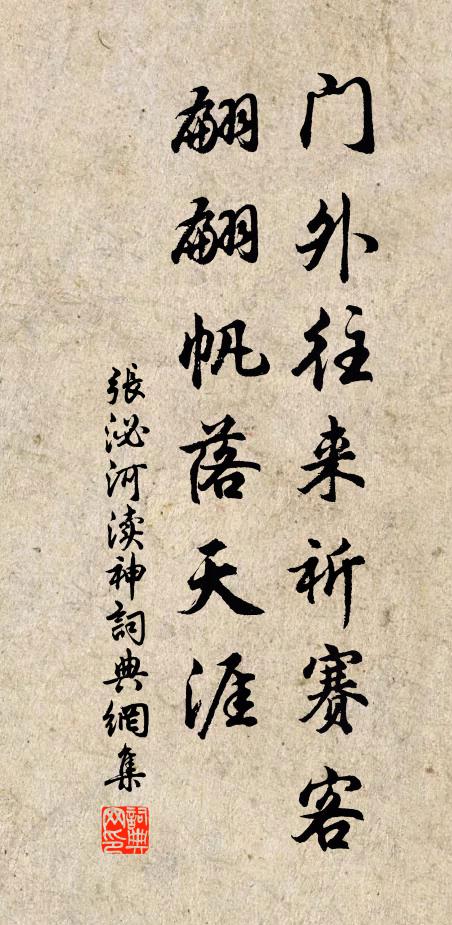 门外往来祈赛客
翩翩帆落天涯
張泌河渎神詞典網集
詞典
网印